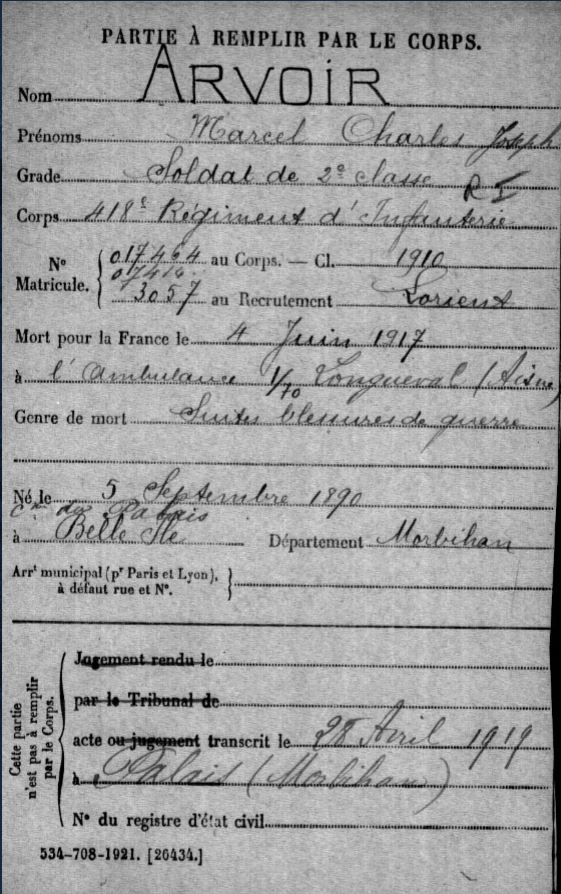 PARTIE À REMPLIR PAR LE CORPS.
Nom ARVOIR
Prénoms Marcel Charles Joseph
Grade Soldat de 2e classe
R I
Corps 418e Régiment d'Infanterie
Nº Matricule. 017464 au Corps. — Cl. 1910
07416
3057 au Recrutement Lorient
Mort pour la France le 4 Juin 1917
à l'ambulance 1/70 Longueval (Aisne)
Genre de mort Suites blessures de guerre
Né le 5 Septembre 1890
Cne du Palais
à Belle Ile Département Morbihan
Arrt municipal (pr Paris et Lyon),
à défaut rue et Nº.
Cette partie
n'est pas à remplir
par le Corps.
Jugement rendu le
par le Tribunal de
acte ou jugement transcrit le 28 Avril 1919
à Palais (Morbihan)
Nº du registre d'état civil
534-708-1921. [26434.]